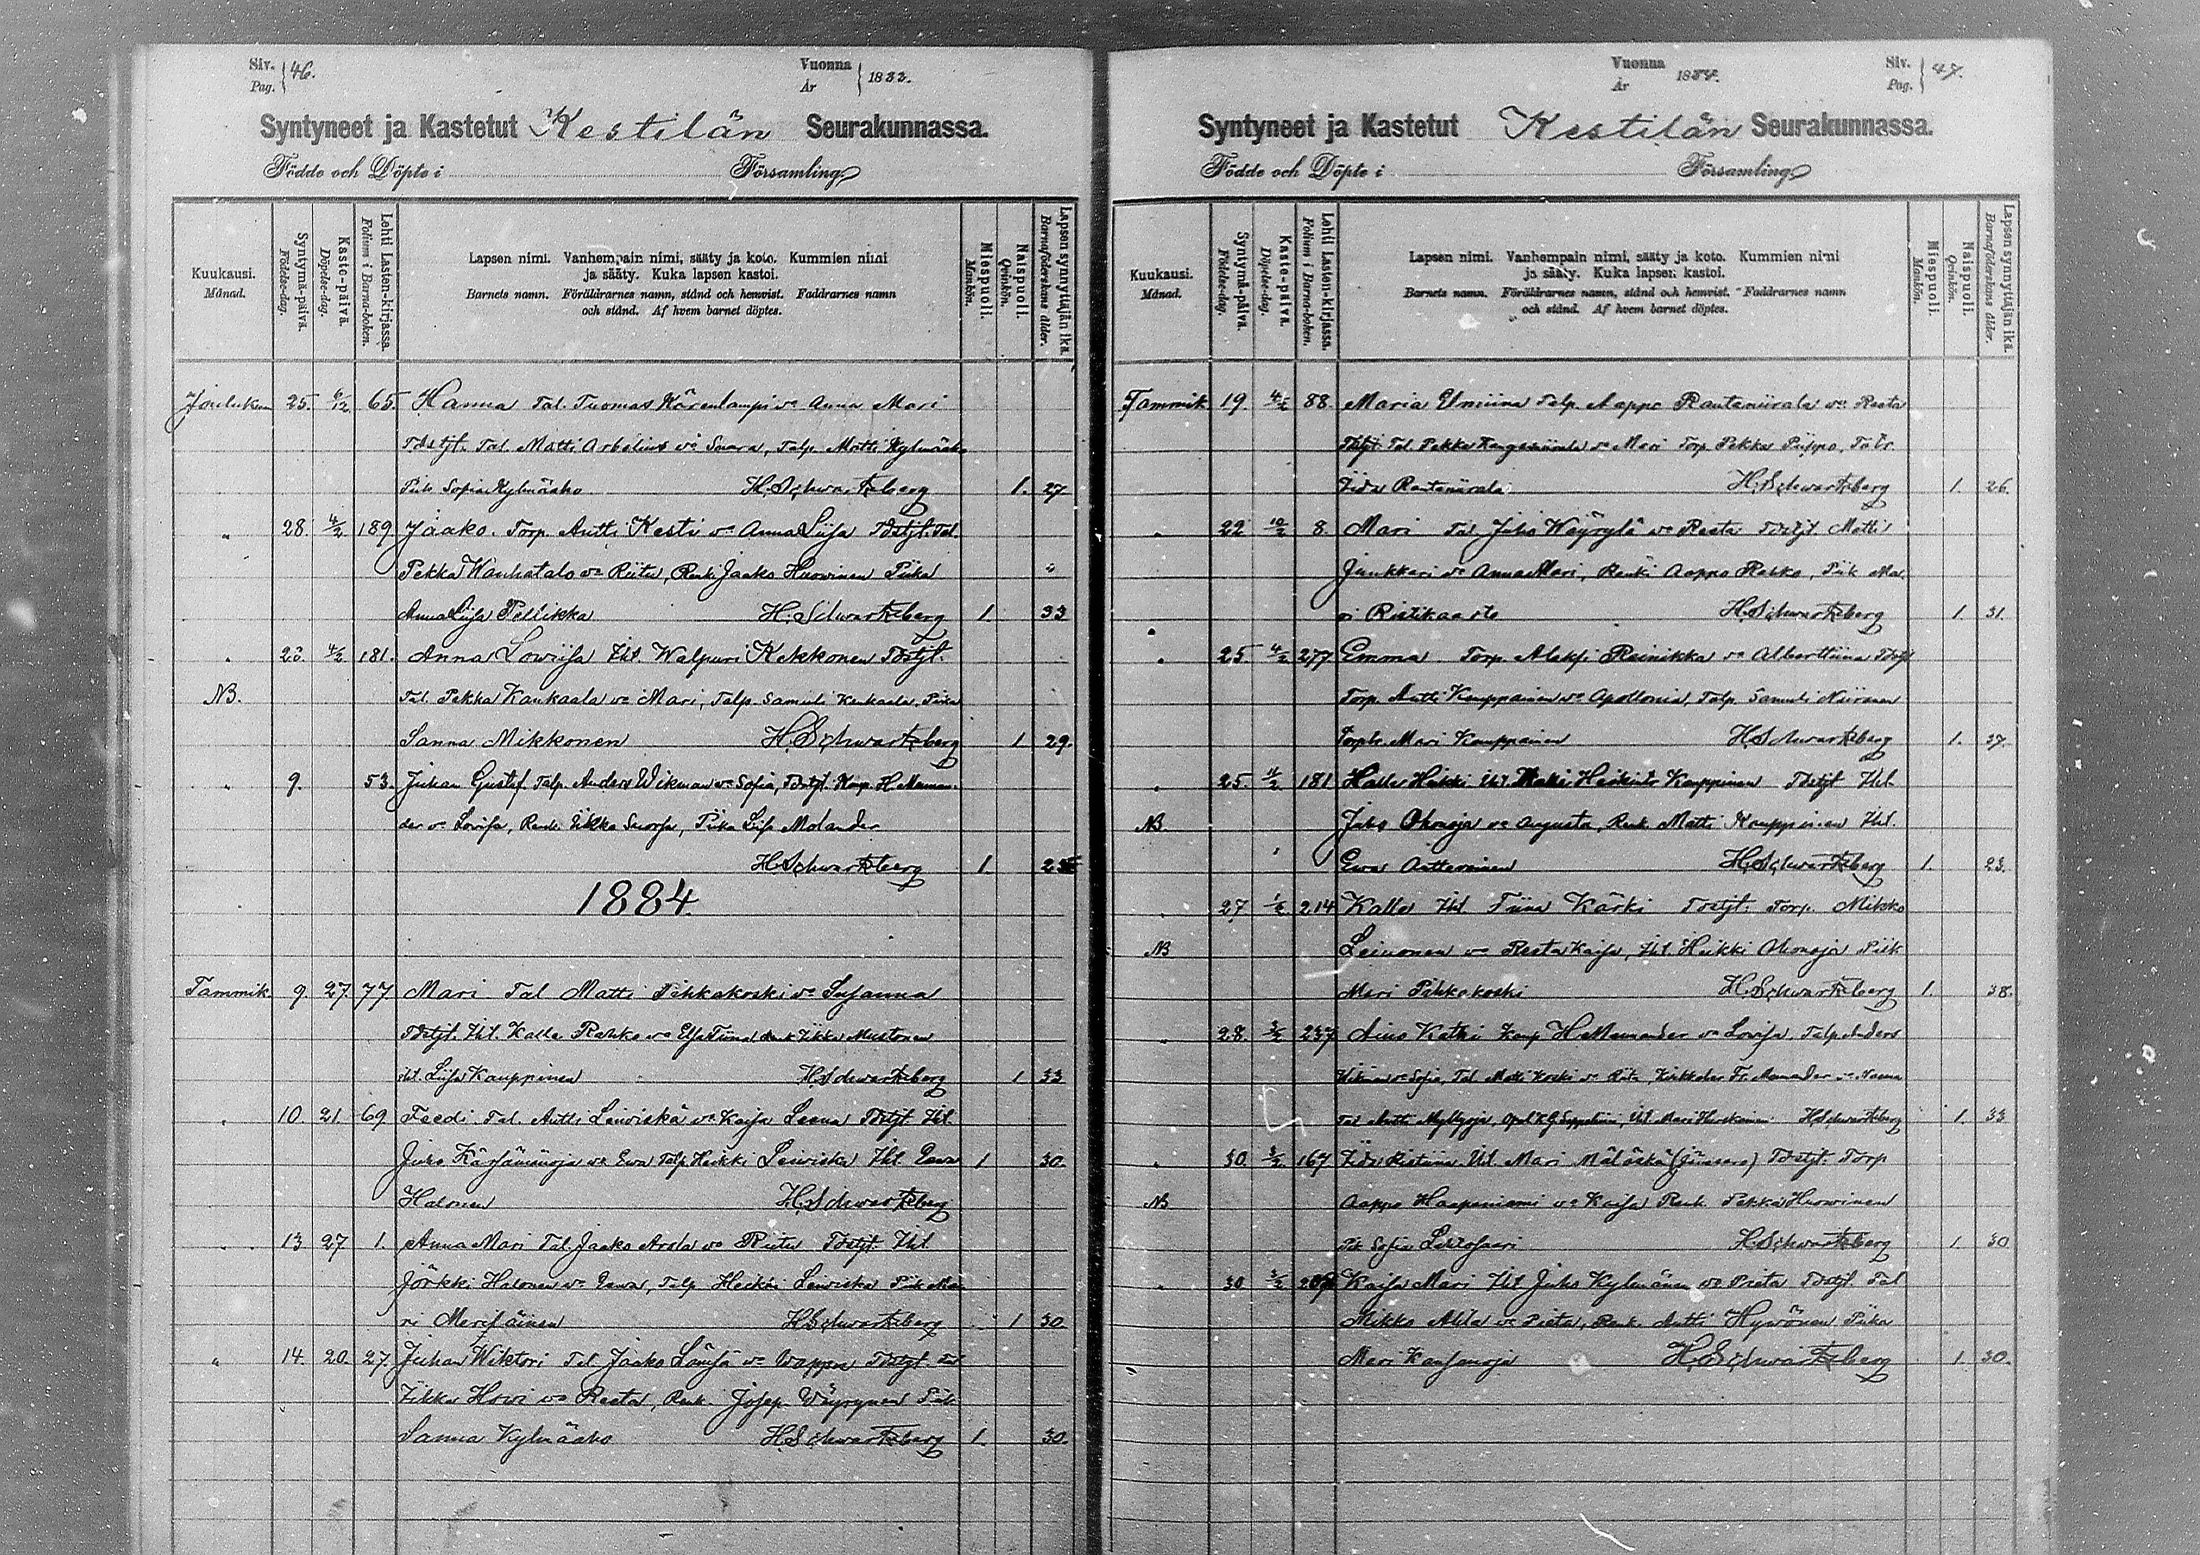 Siv. Pag. 46. Vuonna År 1883.
Syntyneet ja Kastetut Kestilän Seurakunnassa.
Födde och Döpte i Församling
Kuukausi. Månad. Syntymä-päivä. Födelse-dag. Kaste-päivä. Döpelse-dag. Lehti Lasten-kirjassa. Folium i Barna-boken. Lapsen nimi. Vanhempain nimi, sääty ja koto. Kummien nimi ja sääty. Kuka lapsen kastoi. Barnets namn. Föräldrarnes namn, stånd och hemvist. Faddrarnes namn och stånd. Af hvem barnet döptes. Miespuoli. Mankön. Naispuoli. Qvinkön. Lapsen synnyttäjän ikä. Barnaföderskans ålder.
Jouluku 25. 65. Hanna Tal. Tuomas Kärenlampi vo Anna Mari
Tdstjt. Tal. Matti Arbelius vo Saara, Talp. Matti Kylmäaho
Piik Sofia Kylmäaho H. Schwartzberg 1. 27
" 28. 4/2 189 Jaako. Torp. Antti Kesti vo Anna Liisa Tdstjt. Tal.
Pekka Wanhatalo vo Riitu, Renki Jaako Huovinen Piika
Anna Liisa Pellikka H. Schwartzberg 1. 33
" 4/2 181. Anna Lowiisa Itl. Walpuri Kekkonen Tdstjt.
NB. Tal. Pekka Kankaala vo Mari, Talp. Samuli Kankaala, Piika
Sanna Mikkonen H. Schwartzberg 1 29.
" 9. 53. Juhan Gustef Talp. Anders Wikman vo Sofia, Tdstjt. Kaup. H. Maman-
der vo Lovisa, Renk. Erkko Suorsa, Piika Liisa Molander
H. Schwartzberg 1
1884.
Tammik. 9. 27. 77. Mari Tal Matti Pihkakoski vo Susanna
Tdstjt. Itl. Kalle Rahko vo Elsa Tiina, Renk. Erkko Mustonen
Itl. Liisa Kauppinen H. Schwartzberg 1 33
" 10. 21. 69. Feedi Tal. Antti Leiviskä vo Kaisa Leena Tdstjt. Itl.
Juho Kärsämäoja vo Ewa Talp. Heikki Leiviskä Itl. Eewa 1 30.
Halonen H. Schwartzberg
" 13 27 1. Anna Mari Tal. Jaako Arola vo Riitu Tdstjt. Itl.
Jörkki Halonen vo Eewa, Talp. Heikki Leiviskä Piik Ma-
ri Merijäinen H. Schwartzberg 1 30
" 14. 20. 27. Juhan Wiktori Tal. Jaako Lämsä vo Wappu Tdstjt. Tal
Erkko Howi vo Reeta, Renk. Josep Wäyrynen Piik
Sanna Kylmäaho H. Schwartzberg 1. 30.
Vuonna År 1884. Siv. Pag. 47.
Syntyneet ja Kastetut Kestilän Seurakunnassa.
Födde och Döpte i Församling
Kuukausi. Månad. Syntymä-päivä. Födelse-dag. Kaste-päivä. Döpelse-dag. Lehti Lasten-kirjassa. Folium i Barna-boken. Lapsen nimi. Vanhempain nimi, sääty ja koto. Kummien nimi ja sääty. Kuka lapsen kastoi. Barnets namn. Föräldrarnes namn, stånd och hemvist. Faddrarnes namn och stånd. Af hvem barnet döptes. Miespuoli. Mankön. Naispuoli. Qvinkön. Lapsen synnyttäjän ikä. Barnaföderskans ålder.
Tammik 19. 4/2 88. Maria Emiina Talp. Aappo Rautaniirala vo Reeta
Tdstjt. Tal. Pekka vo Mari Torp. Pekka Piippo, Talr.
Rautaniirala H. Schwartzberg 1. 26.
" 22 10/2 8. Mari Tal. Juho Wäyrylä vo Reeta Tdstjt. Matti
Junkkari vo Anna Mari, Renki Aappo Rahko, Piik Ma-
ri Ristikaarto H. Schwartzberg 1. 31.
" 25. 4/2 277 Emma. Torp. Aleksi Reinikka vo Alberttiina Tdstjt
Torp. Antti Kauppinen vo Apollonia, Talp. Samuli Niiranen
Torptr. Mari Kauppinen H. Schwartzberg 1. 37.
" 25. 4/2 181 Kalle Heikki Itl. Kauppinen Tdstjt Itl.
NB. Juho Ohonoja vo Augusta, Renk. Matti Kauppinen Itl.
Ewa H. Schwartzberg 1. 23.
" 27 214 Kalle Itl Tiina Kärki Tdstjt. Torp. Mikko
NB Leinonen vo Reeta Kaisa, Itl. Heikki Ohonoja Piik
Mari Pihkakoski H. Schwartzberg 1. 38.
" 28. 3/2 237 Aino Kathi Kaup H. Mamander vo Lovisa, Talp Anders
Wikman vo Sofia, Tal Matti Koski vo Riitu, Fr. Amnader vo Nanna
Tal Antti Myllyoja, Itl. Mari Hurskainen H. Schwartzberg 1. 33
" 30. 3/2 167 Ristiina Itl. Mari Mäläskä Tdstjt. Torp
NB Aappo Haapaniemi vo Kaisa Renk. Pekka Huowinen
Pik Sofia Leskosaari H. Schwartzberg 1 30
" 30 3/2 Kaisa Mari Itl Juho Kylmänen vo Pieta Tdstjt. Tal
Mikko Ahla vo Pieta, Renk. Antti Hyvönen Piika
Mari Kansanoja H. Schwartzberg 1. 30.